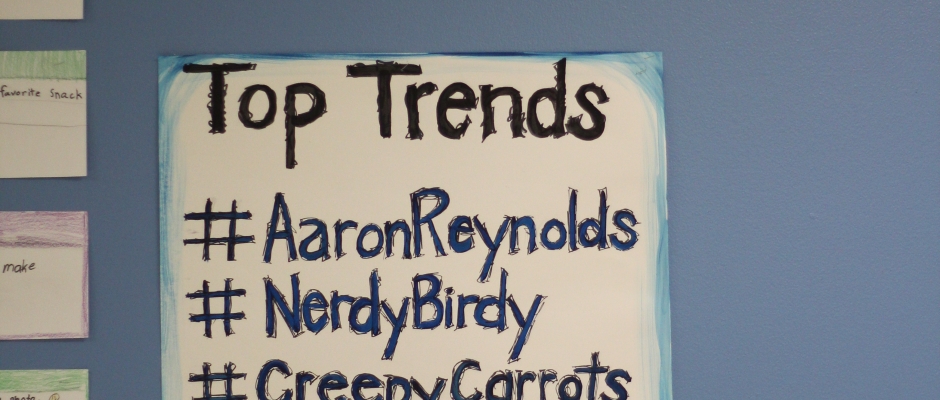 favorite Snack
make
photo
Top Trends
#AaronReynolds
#NerdyBirdy
#CreepyCarrots